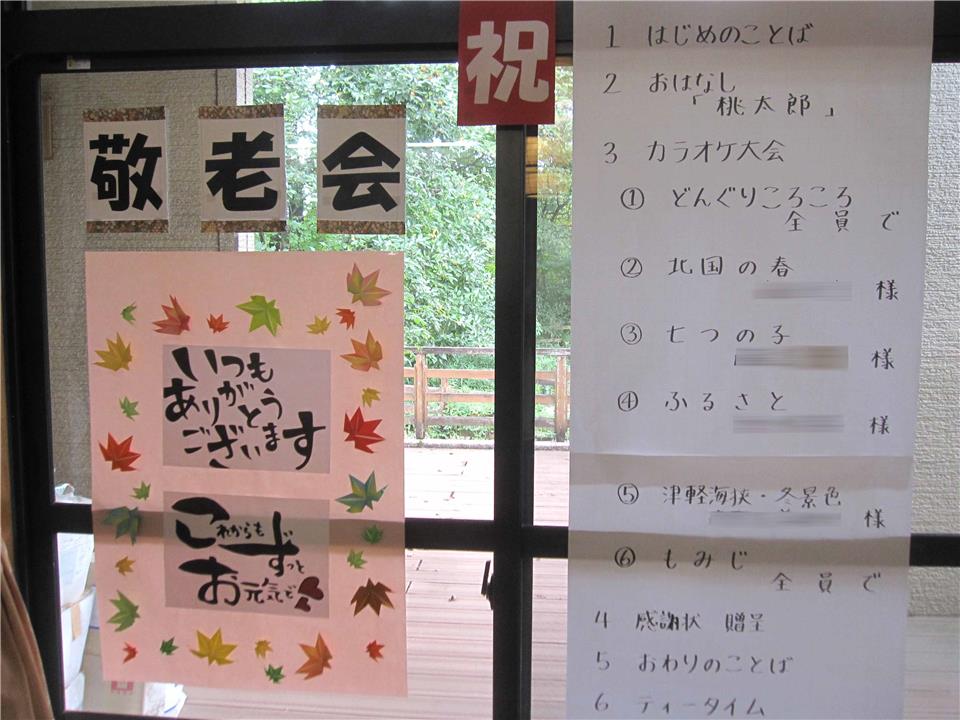 祝
敬老会
いつも
ありがとう
ございます
これからも
ずっと
お元気で
1 はじめのことば
2 おはなし
「桃太郎」
3 カラオケ大会
① どんぐりころころ
全員で
② 北国の春
様
③ 七つの子
様
④ ふるさと
様
⑤ 津軽海狭・冬景色
様
⑥ もみじ
全員で
4 感謝状 贈呈
5 おわりのことば
6 ティータイム